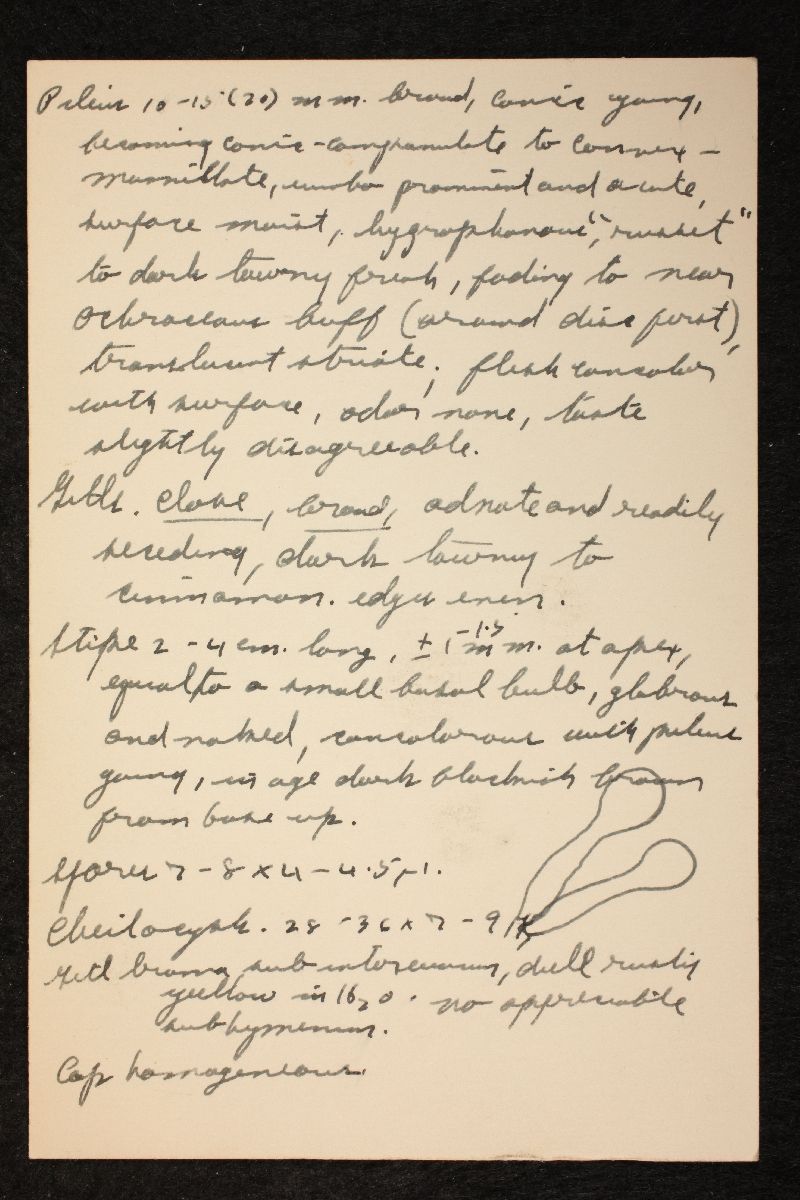 Pileus 10-15 (20) mm. broad, conic young,
becoming conic-campanulate to convex-
mammillate, umbo prominent and acute,
surface moist, hygrophanous, "russet"
to dark tawny fresh, fading to near
ochraceous buff (around disc first),
translucent striate; flesh concolor
with surface, odor none, taste
slightly disagreeable.
Gills. close, broad, adnate and readily
seceding, dark tawny to
cinnamon. edges even.
Stipe 2-4 cm. long, ± 1-1.5 mm. at apex,
equal to a small basal bulb, glabrous
and naked, concolorous with pileus
young, in age dark blackish brown
from base up.
Spores 7-8 x 4-4.5 µ.
Cheilocyst. 28-36 x 7-9 µ
Gill trama sub interwoven, dull rusty
yellow in H2O. no appreciable
subhymenium.
Cap homogeneous.